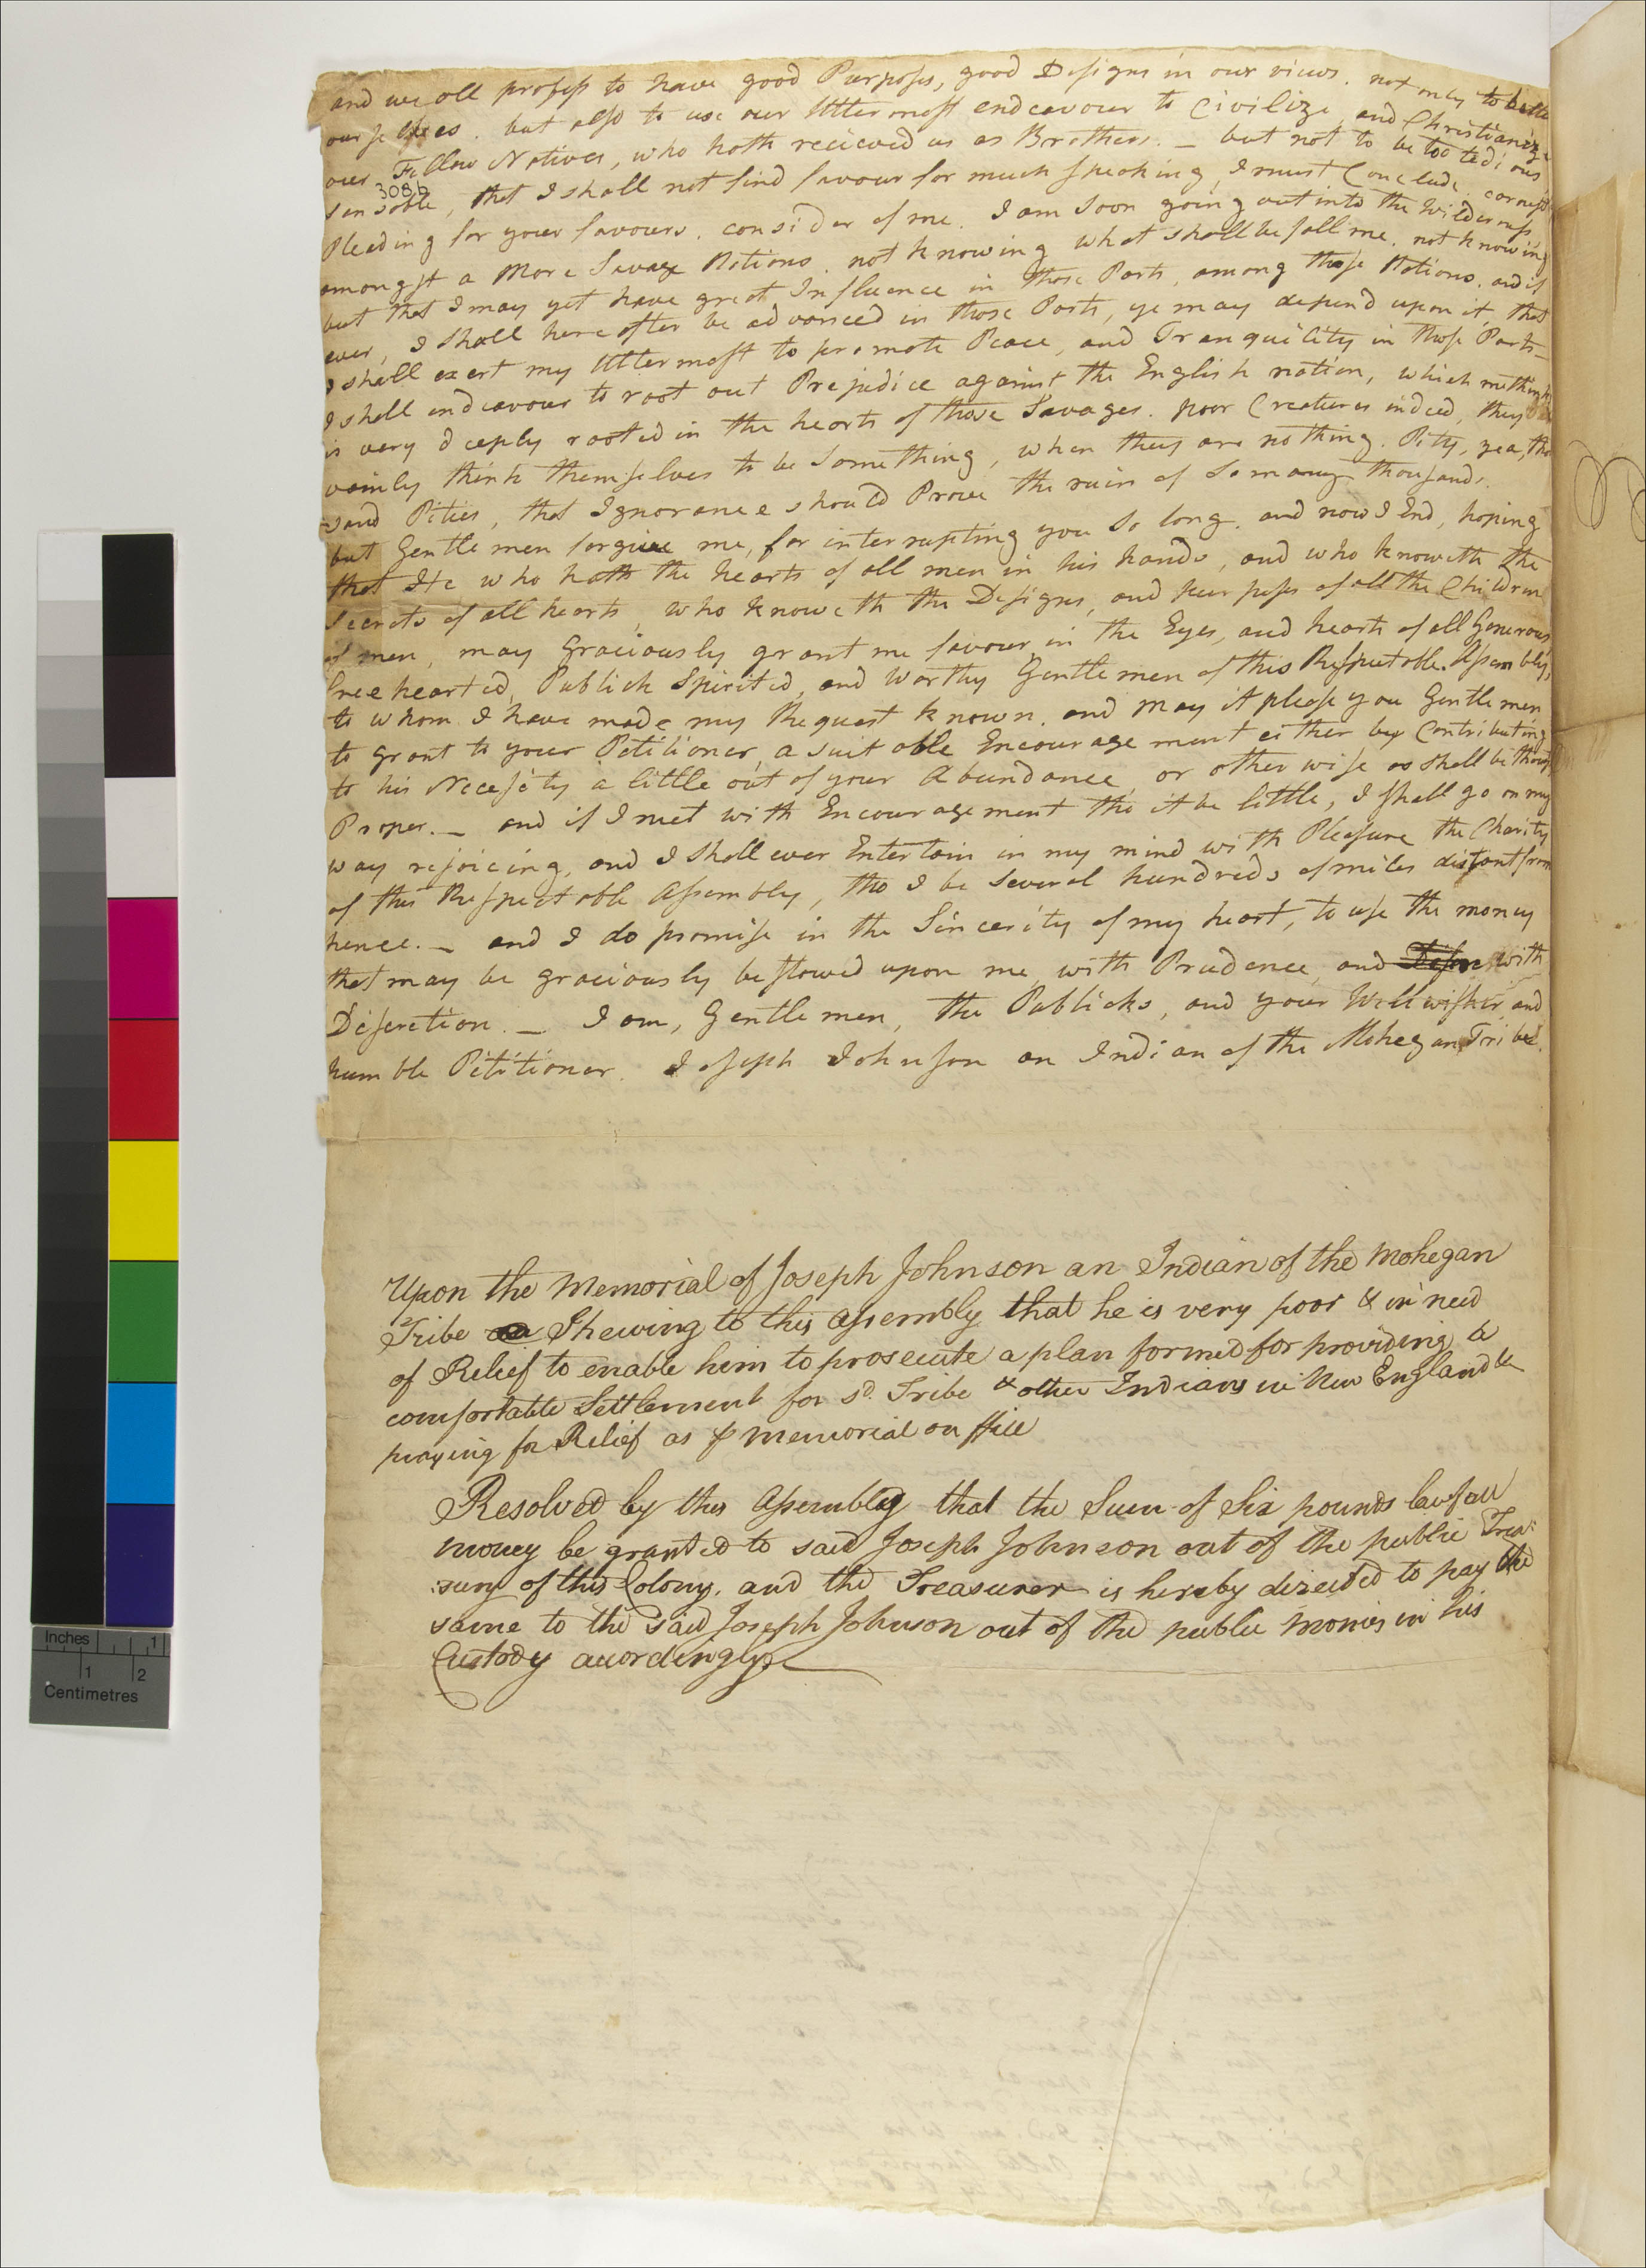 and we all profess to have good Purposes, good Designs in our views. not only to
our selves. but also to use our Uttermost endeavour to Civilize, and Christianize
our Fellow Natives, who hath recieved us as Brothers. — but not to be too tedious
308b
sensable, that I shall not find favour for much speaking, I must Conclude. earnest
Pleading for your favours. consider of me. I am soon going out into the Wilderness
amongst a More Savage Nations. not knowing what shall befall me. not knowing
but that I may yet have great Influence in those Parts, among those Nations. and if
ever, I shall hereafter be advanced in those Parts, ye may depend upon it, that
I shall exert my Uttermost to promote Peace, and Tranquility in those Parts—
I shall endeavour to root out Prejudice against the English nation, which methinks
is very deeply rooted in the hearts of those Savages. poor Creatures indeed, they
vainly think themselves to be Something, when they are nothing. Pity, yea, thou
sand Pities, that Ignorance should Prove the ruin of so many thousands.
but Gentlemen forgive me, for interrupting you so long. and now I End, hoping
that He who hath the hearts of all men in his hands, and who knoweth the
secrets of all hearts, who knoweth the Designs, and purposes of all the Children
of men, may Graciously grant me favour in the Eyes, and hearts of all Generous
free hearted, Publick Spirited, and Worthy Gentlemen of this Respectable Assembly,
to whom I have made my Request known. and may it please you Gentlemen
to grant to your Petitioner, a suitable Encouragement either by Contributing
to his Necessity a little out of your Abundance, or otherwise as shall be thought
Proper. — and if I met with Encouragement tho it be little, I shall go on my
way rejoicing, and I shall ever Entertain in my mind with Pleasure the Charity
of this Respectable Assembly, tho I be several hundreds of miles distant from
hence. — and I do promise in the Sincerity of my heart, to use the money
that may be graciously bestowed upon me, with Prudence, and with
Discretion. — I am, Gentlemen, the Publicks, and your Wellwisher, and
humble Petitioner. Joseph Johnson an Indian of the Mohegan Tribe.
Upon the Memorial of Joseph Johnson an Indian of the Mohegan
Tribe Shewing to this Assembly that he is very poor & in need
of Relief to enable him to prosecute a plan formed for providing a
comfortable Settlement for sd. Tribe & other Indians in New England &
praying for Relief as pr memorial on ffile
Resolved by this Assembly that the Sum of Six pounds lawfull
money be granted to said Joseph Johnson out of the public Trea:
:sury of this Colony, and the Treasurer is hereby directed to pay the
same to the said Joseph Johnson out of the public monies in his
Custody accordingly
Inches 1
1 2
Centimetres